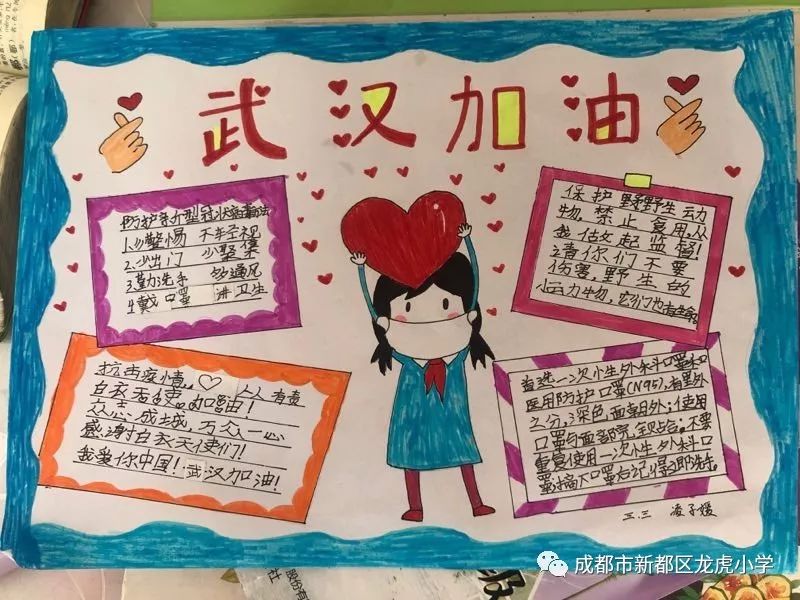 武汉加油
防护新型冠状病毒方法
1.多警惕 不轻视
2.少出门 少聚集
3.勤洗手 多通风
4.戴口罩 讲卫生
保护野野生动
物,禁止食用,从
我做起监督!
请你们不要
伤害,野生的
小动力生物,它们也有生命。
抗击疫情,人人有责
白衣天使,加油!
众心成城,万众一心
感谢白衣天使们!
我爱你中国!武汉加油!
首选一次小生外科口罩和
医用防护口罩(N95),有里外
之分,深色,面朝外;使用
口罩与面部完,现贴合。不要
重复使用一次小生外科口
罩,摘口罩后记得立即洗手。
三.三 凌子媛
成都市新都区龙虎小学